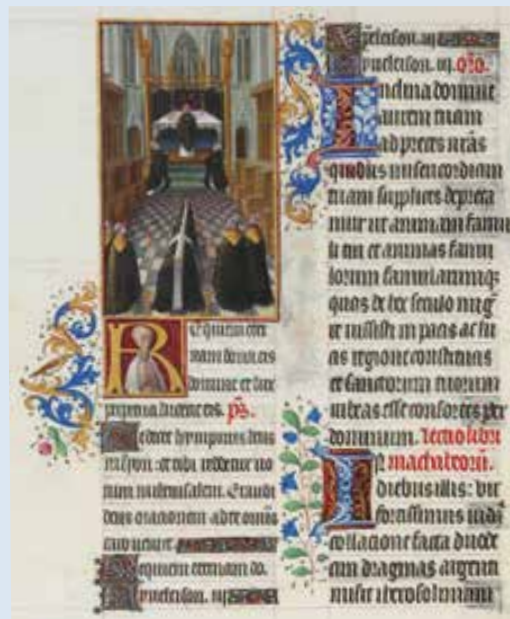 Requiem eter
nam dona eis
domine et lux
perpetua luceat eis. ps̄.
Te decet hympnus deus
in syon: et tibi reddetur uo
tum in iherusalem. Exaudi
deus orationem ad te omnis
caro ueniet
Requiem eternam do.
Kyrieleison. iij
Xp̄eleison. iij
Kyrieleison. iij. or̄o.
Inclina domine
aurem tuam
ad preces nr̄as
quibus misericordiam
tuam supplices depreca
mur ut animam famu
li tui et animas famu
lorum famularumq;
quos de hoc seculo migr
re iussisti in pacis ac lu
cis regione constituas
et sanctorum tuorum
iubeas esse consortes per
dominum. Lectio libri
In machabeorū.
diebus illis: vir
fortissimus iuda
collacione facta duode
cim dragmas argenti
misit iherosolimam